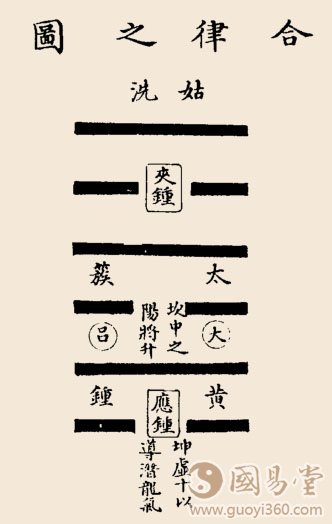 合律之圖
姑洗
夾鍾
太簇
坎中之
陽將升
大呂
黃鍾
應鍾
坤虛十以
導潛龍氣
國易堂
www.guoyi360.com